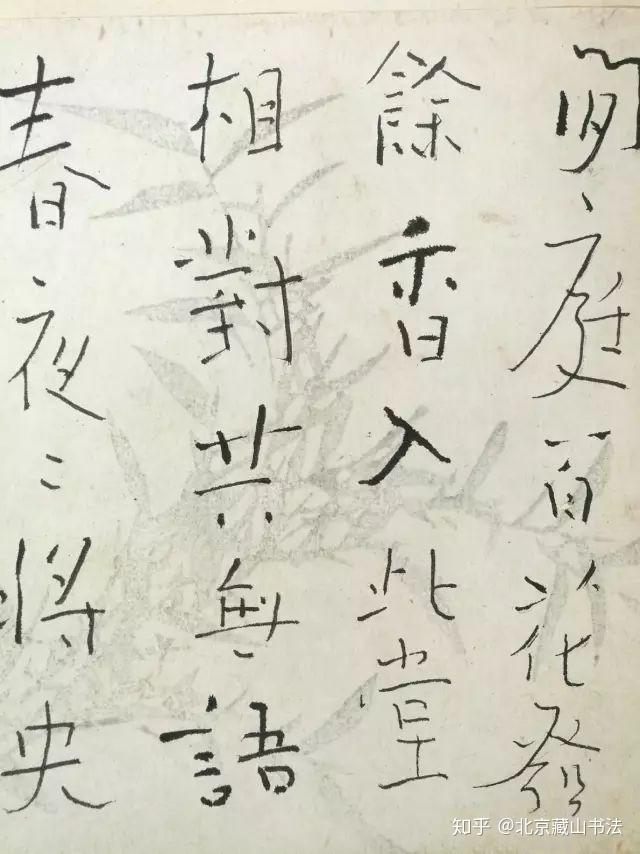 閒庭百花發
餘香入此堂
相對共無語
春夜〻将央
知乎 @北京藏山书法